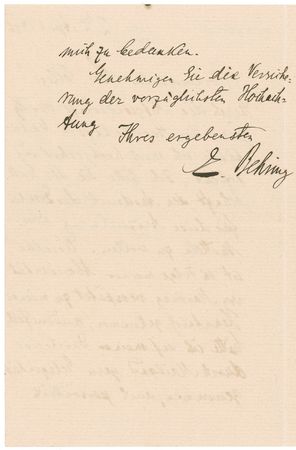 mich zu bedanken.
Genehmigen Sie die Versiche-
rung der vorzüglichsten Hochach-
tung
Ihres ergebensten
E. Behring